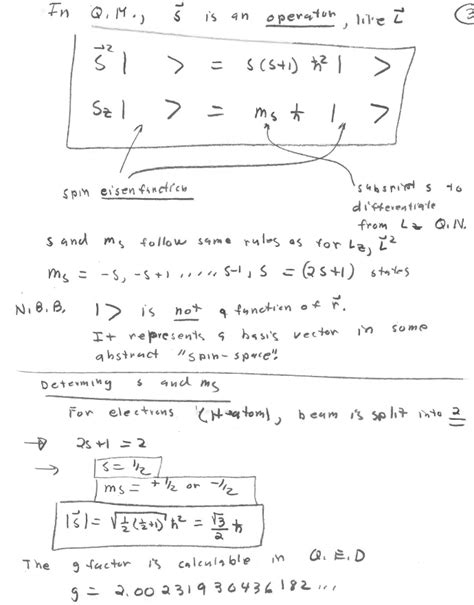 In Q.M., s⃗ is an operator, like L⃗ ③
s⃗² | > = s(s+1) ħ² | >
Sz | > = ms ħ | >
spin eigenfunction
subscript s to
differentiate
from Lz Q.N.
s and ms follow same rules as for Lz, L⃗²
ms = -s, -s+1 ..... s-1, s = (2s+1) states
N.B.B. | > is not a function of r⃗.
It represents a basis vector in some
abstract "spin-space".
Determing s and ms
For electrons (H-atom), beam is split into 2
⇒ 2s+1 = 2
→ s = 1/2
ms = +1/2 or -1/2
|s⃗| = √(1/2 (1/2+1) ħ²) = √3/2 ħ
The g factor is calculable in Q.E.D
g = 2.00231930436182 ...